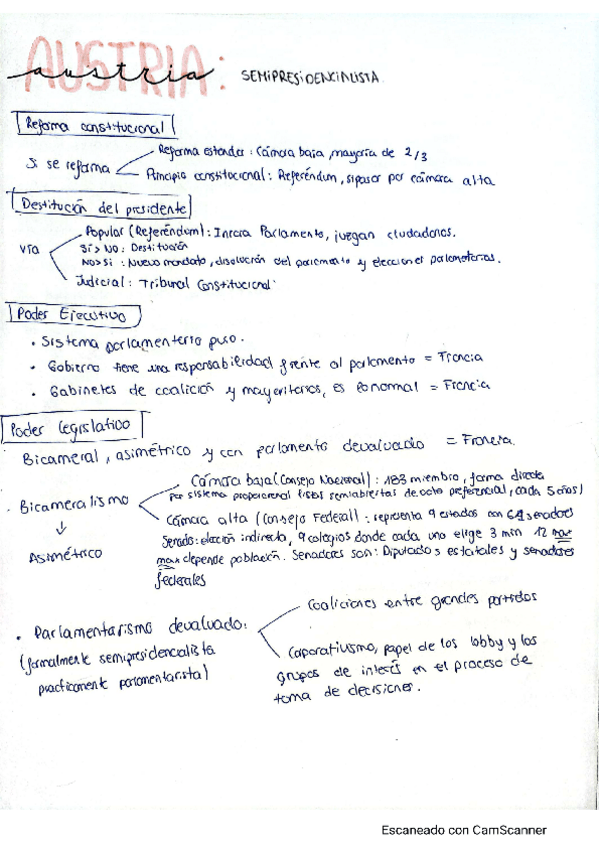 AUSTRIA:
austria
SEMIPRESIDENCIALISTA
Reforma constitucional
Si se reforma
Reforma estandar: Cámara baja, mayoria de 2/3
Principio constitucional: Referéndum, si pasar por cámara alta
Destitución del presidente
Vía
Popular (Referéndum): Inicia Parlamento, juegan ciudadanos.
Sí > No: Destitución
No > Si: Nuevo mandato, disolución del parlamento y elecciones parlamentarias.
Judicial: Tribunal Constitucional
Poder Ejecutivo
• Sistema parlamentario puro.
• Gobierno tiene una responsabilidad frente al parlamento = Francia
• Gabinetes de coalición y mayoritarios, es lo normal = Francia
Poder Legislativo
Bicameral, asimétrico y con parlamento devaluado = Francia.
• Bicameralismo
↓
Asimétrico
Cámara baja (Consejo Nacional): 183 miembro, forma directa
por sistema proporcional listas semiabiertas de voto preferencial, cada 5 años)
Cámara alta (Consejo Federal): representa 9 estados con 64 senadores
Senado: elección indirecta, 9 colegios donde cada uno elige 3 min 12 max
max depende población. Senadores son: Diputados estatales y senadores
federales
• Parlamentarismo devaluado:
(formalmente semipresidencialista
practicamente parlamentarista)
Coaliciones entre grandes partidos
Corporativismo, papel de los lobby y los
grupos de interés en el proceso de
toma de decisiones.
Escaneado con CamScanner